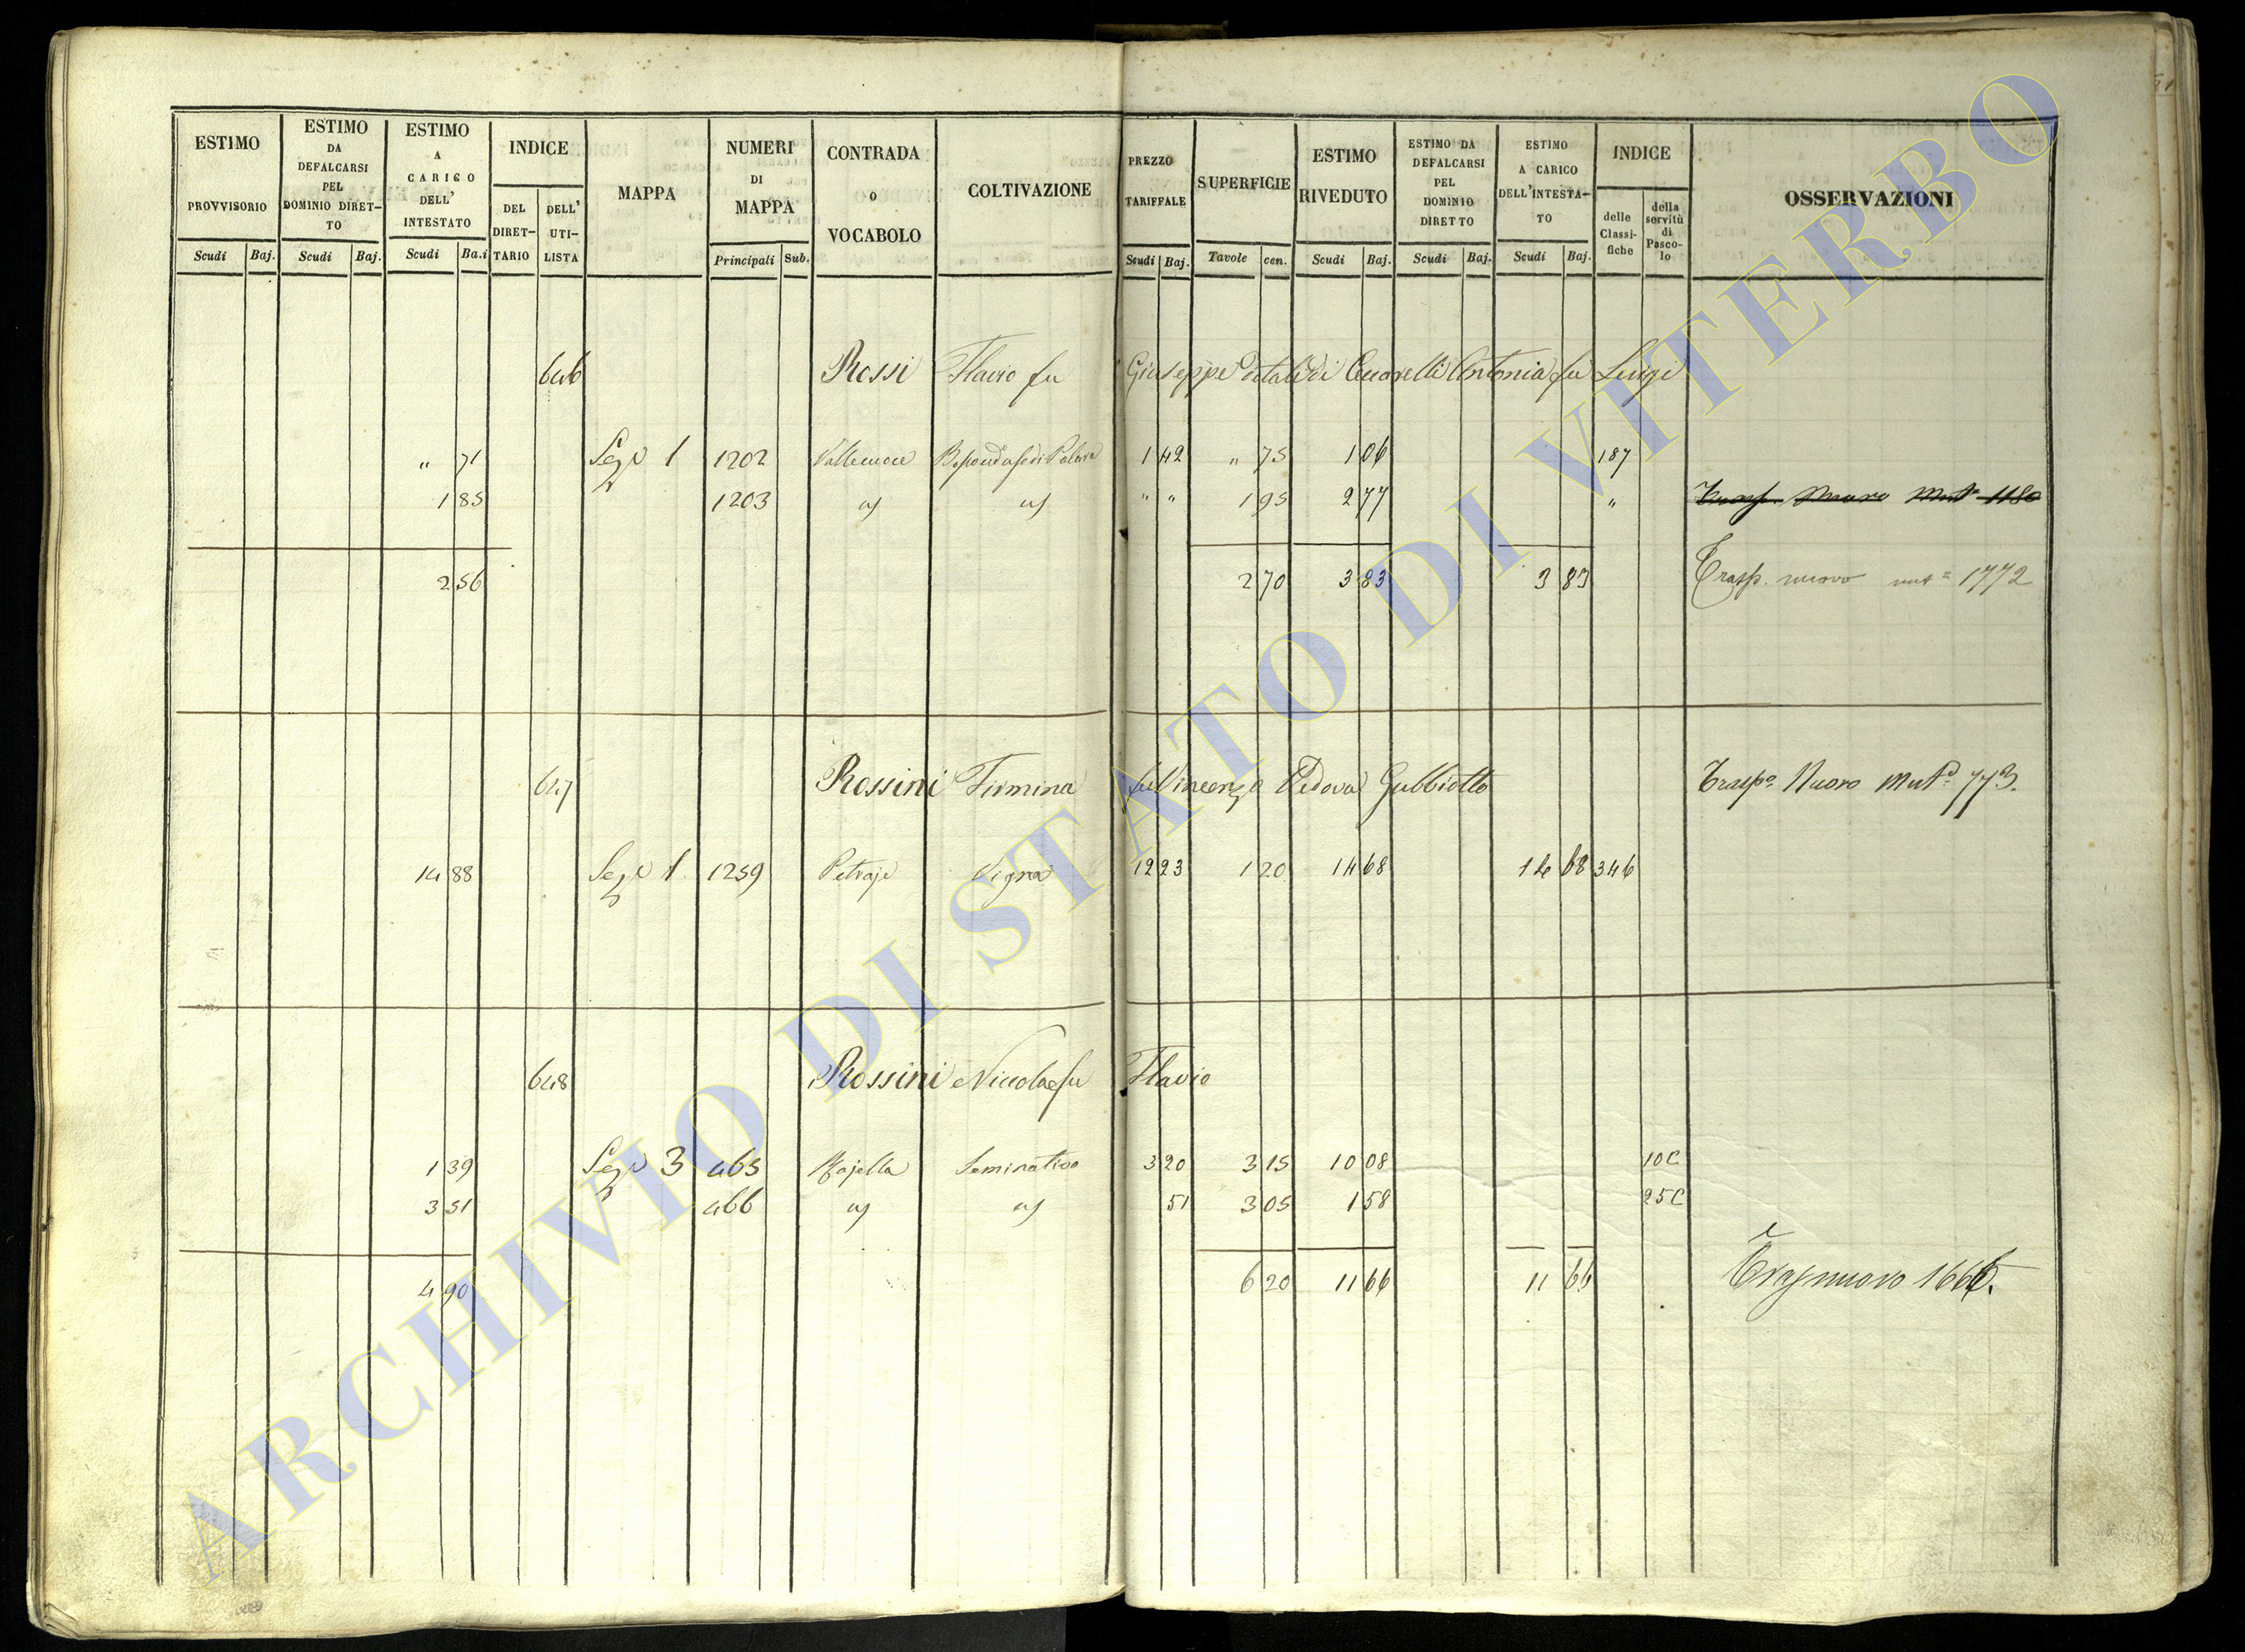 ESTIMO PROVVISORIO Scudi Baj.
ESTIMO DA DEFALCARSI PEL DOMINIO DIRET-TO Scudi Baj.
ESTIMO A CARICO DELL' INTESTATO Scudi Ba.i
INDICE DEL DIRET-TARIO DELL' UTI-LISTA
MAPPA
NUMERI DI MAPPA Principali Sub.
CONTRADA O VOCABOLO
COLTIVAZIONE
PREZZO TARIFFALE Scudi Baj.
SUPERFICIE Tavole cen.
ESTIMO RIVEDUTO Scudi Baj.
ESTIMO DA DEFALCARSI PEL DOMINIO DIRETTO Scudi Baj.
ESTIMO A CARICO DELL'INTESTA-TO Scudi Baj.
INDICE delle Classi-fiche della servitù di Pasco-lo
OSSERVAZIONI
646 Rossi Flavio fu Giuseppe dotale di Antonia fu Luigi
" 71 Sez.e 1 1202 1 42 " 75 1 06 187
1 85 1203 " " 1 95 2 77 " Trasp. Nuovo Mut. 1180
2 56 2 70 3 83 3 83 Trasp. nuovo mut = 1772
647 Rossini Firmina fu Vincenzo Vedova Gubbiotto Trasp.o Nuovo Mut.e 773.
14 88 Sez.e 1 1259 Petraje Vigna 12 23 1 20 14 68 14 68 346
648 Rossini Niccola fu Flavio
1 39 Sez.e 3 465 Majella Seminativo 3 20 3 15 10 08 10C
3 51 466 51 3 05 1 58 25C
4 90 6 20 11 66 11 66 1666.
ARCHIVIO DI STATO DI VITERBO